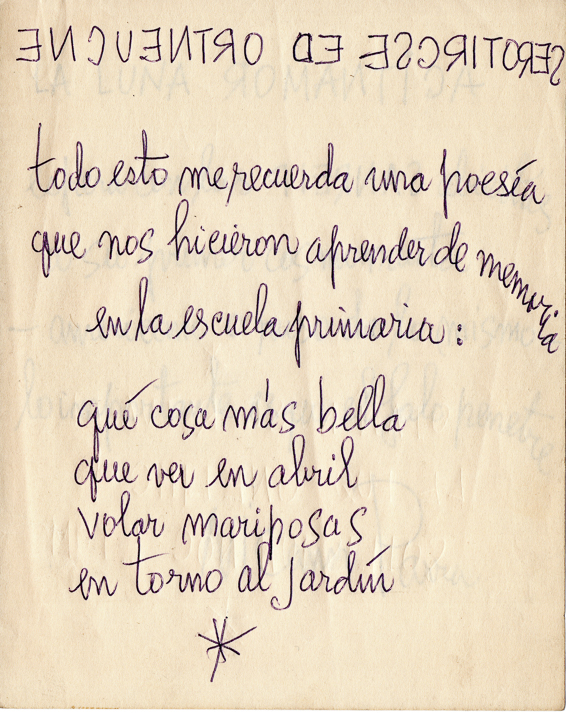 ENCUENTRO DE ESCRITORES
todo esto me recuerda una poesía
que nos hicieron aprender de memoria
en la escuela primaria:
qué cosa más bella
que ver en abril
volar mariposas
en torno al jardín